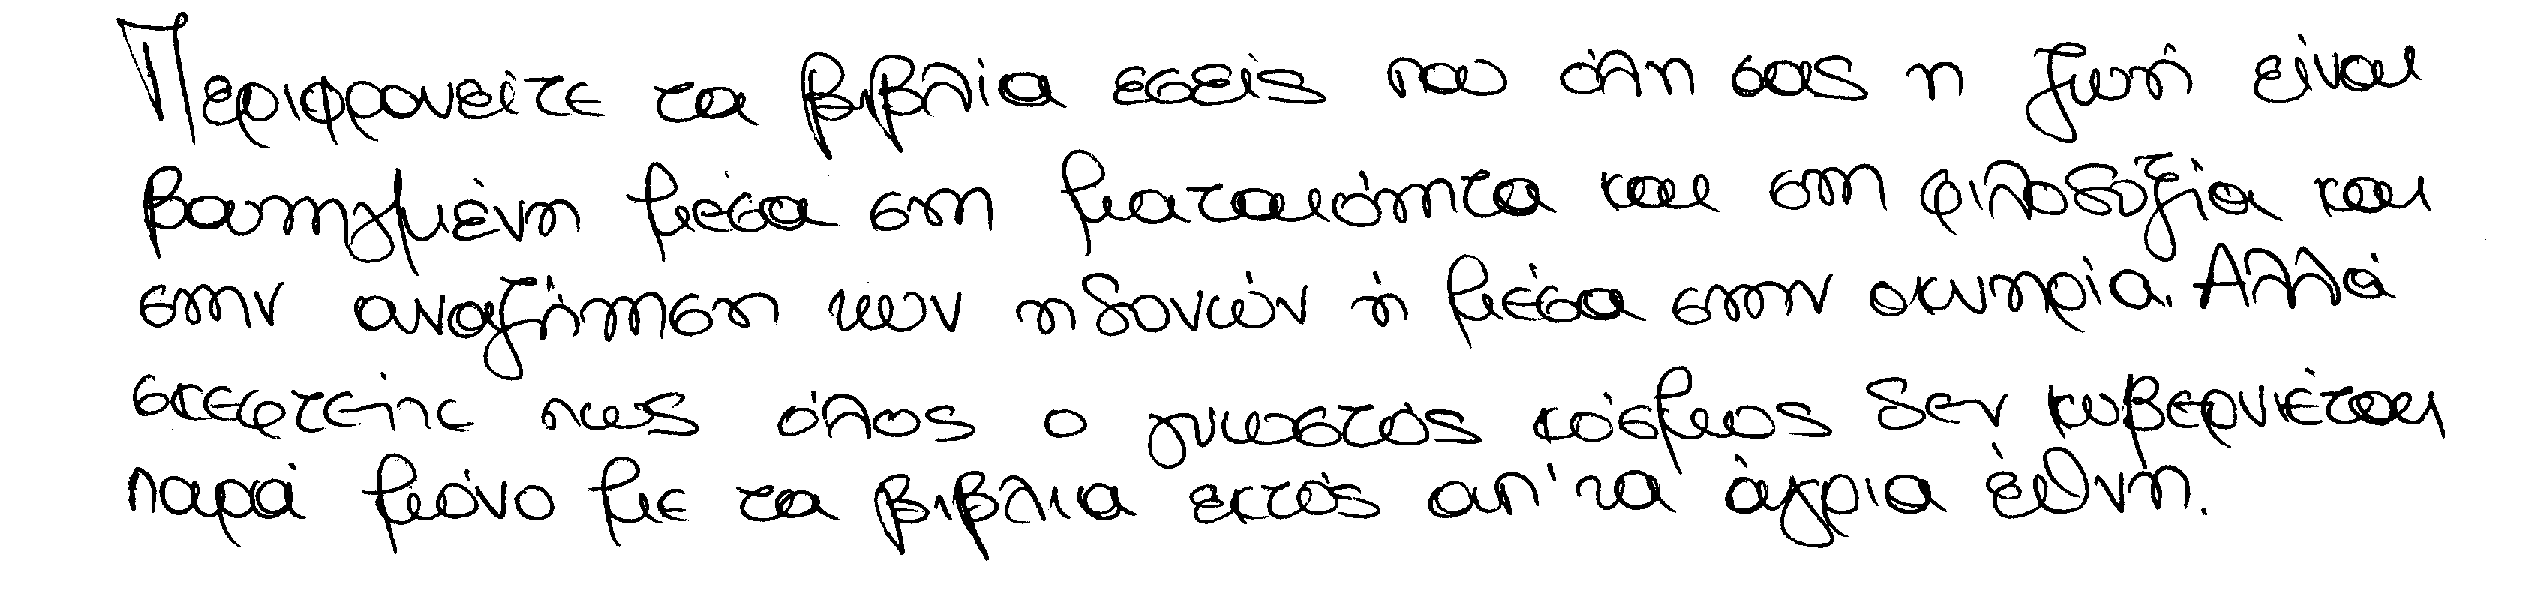 Περιφρονείτε τα βιβλία εσείς που όλη σας η ζωή είναι
βουτηγμένη μέσα στη ματαιότητα και στη φιλοδοξία και
στην αναζήτηση των ηδονών ή μέσα στην οκνηρία. Αλλά
σκεφτείτε πως όλος ο γνωστός κόσμος δεν κυβερνιέται
παρά μόνο με τα βιβλια εκτός απ' τα άγρια έθνη.